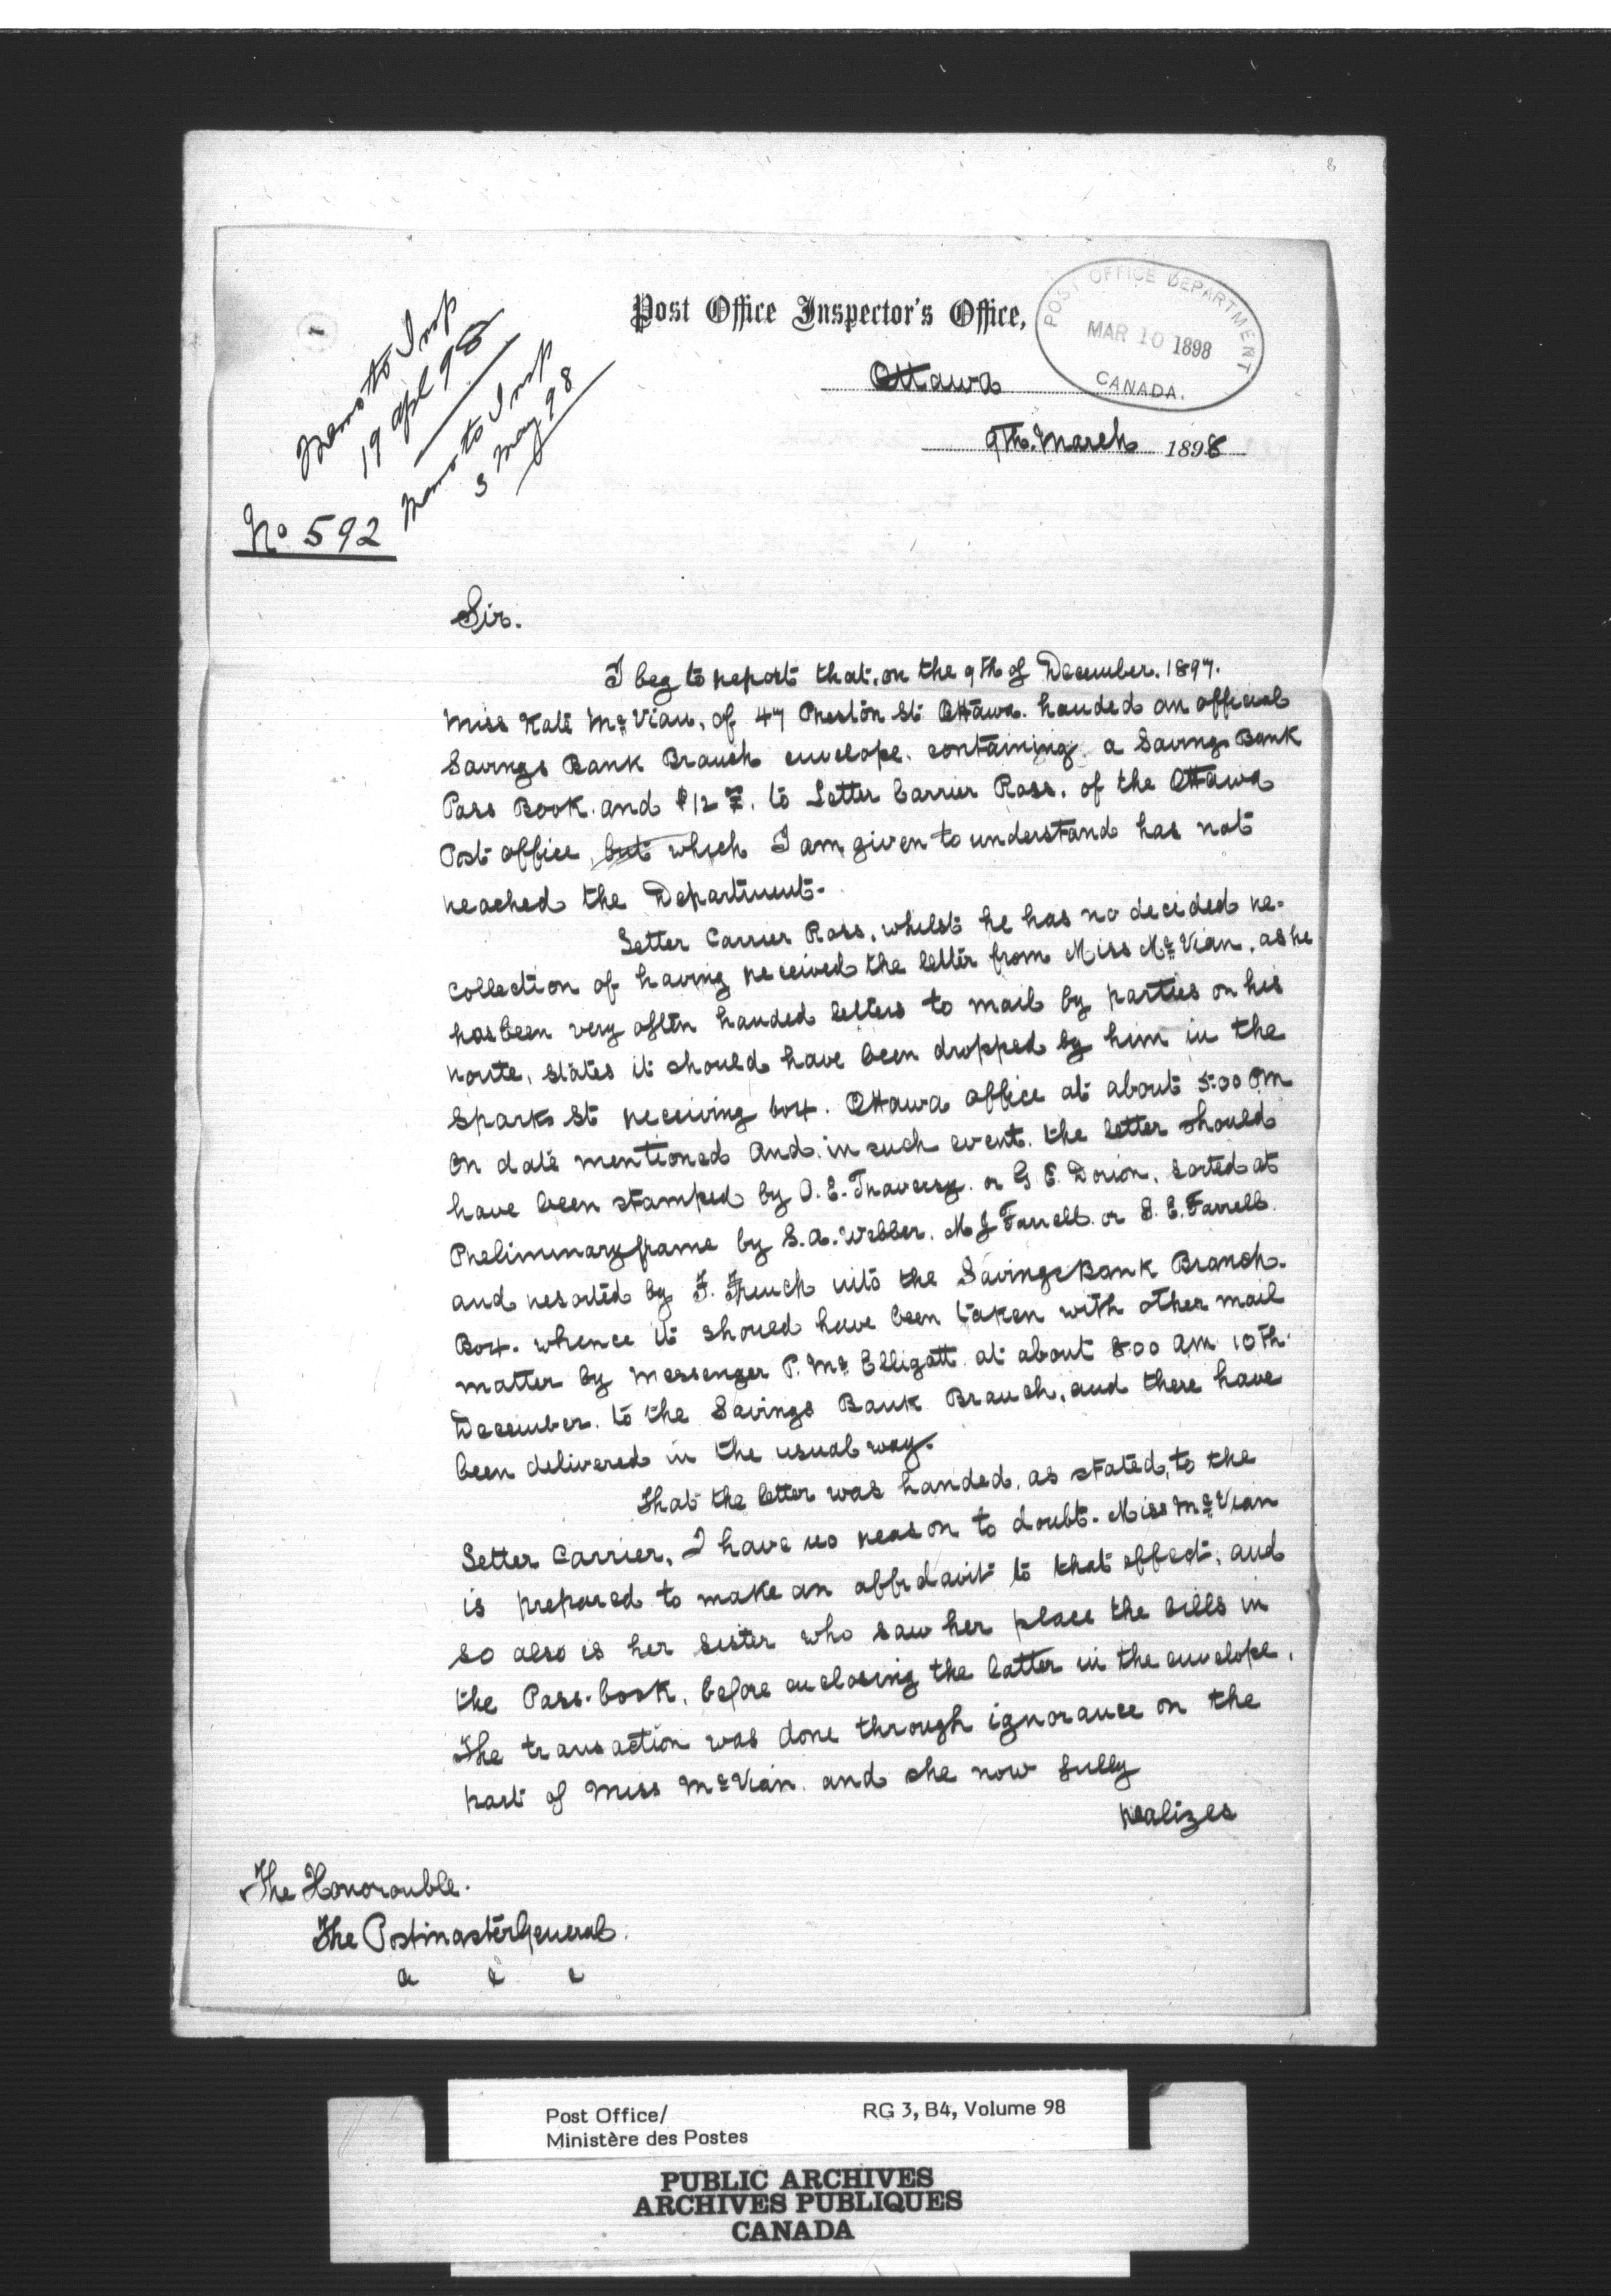 8
1
Memo to Insp
19 Apl 98
Memo to Insp
3 May 98
No 592
Post Office Inspector's Office,
POST OFFICE DEPARTMENT
MAR 10 1898
CANADA.
Ottawa
9th. March 1898
Sir.
I beg to report that, on the 9th of December. 1897.
Miss Kate McVian, of 47 Preston St. Ottawa. handed an official
Savings Bank Branch envelope, containing a Savings Bank
Pass Book and $12 , to Letter Carrier Ross, of the Ottawa
Post office, but which I am given to understand has not
reached the Department.
Letter Carrier Ross, whilst he has no decided re-
collection of having received the letter from Miss McVian, as he
has been very often handed letters to mail by parties on his
route, states it should have been dropped by him in the
Sparks St receiving box. Ottawa office at about 5.00 PM
on date mentioned and, in such event, the letter should
have been stamped by O. E. Traversy. or G E. Dorion, sorted at
Preliminary frame by S. A. Webber, M J Farrell or S. E. Farrell.
and resorted by F. French into the Savings Bank Branch.
Box. whence it should have been taken with other mail
matter by Messenger P. McElligott at about 8.00 am 10th
December. to the Savings Bank Branch, and there have
been delivered in the usual way.
That the letter was handed, as stated, to the
Letter Carrier, I have no reason to doubt. Miss McVian
is prepared to make an affidavit to that effect, and
so also is her sister who saw her place the bills in
the Pass-book, before enclosing the latter in the envelope.
The transaction was done through ignorance on the
part of Miss McVian. and she now fully
realizes
The Honorouble.
The Postmaster General.
Post Office/
Ministère des Postes
RG 3, B4, Volume 98
PUBLIC ARCHIVES
ARCHIVES PUBLIQUES
CANADA